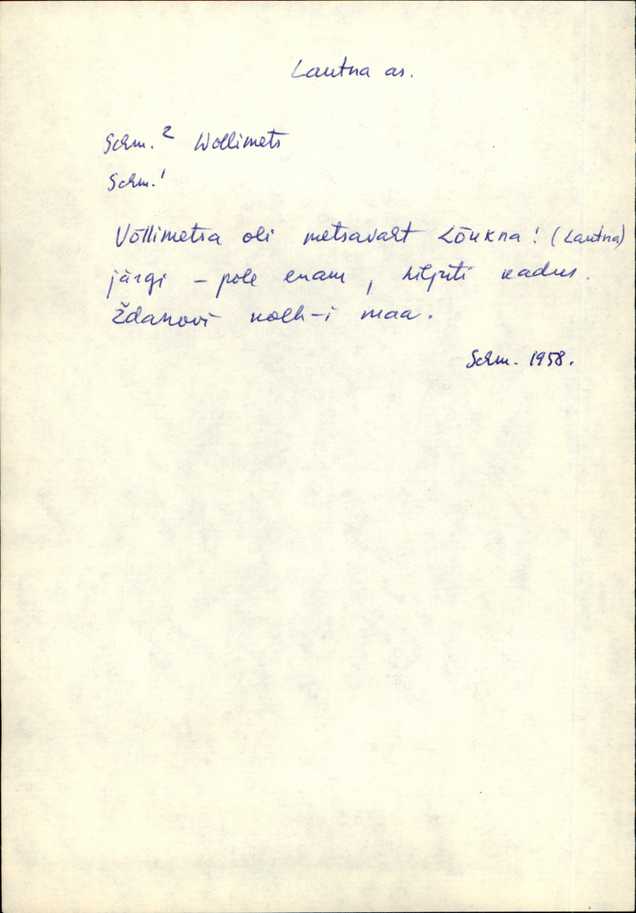 Lautna as.
Schm.² Wollimets
Schm.¹
Võllimetsa oli metsavaht Lõukna! (Lautna)
järgi – pole enam, hiljuti kadus.
Ždanovi kolh-i maa.
Schm. 1958.